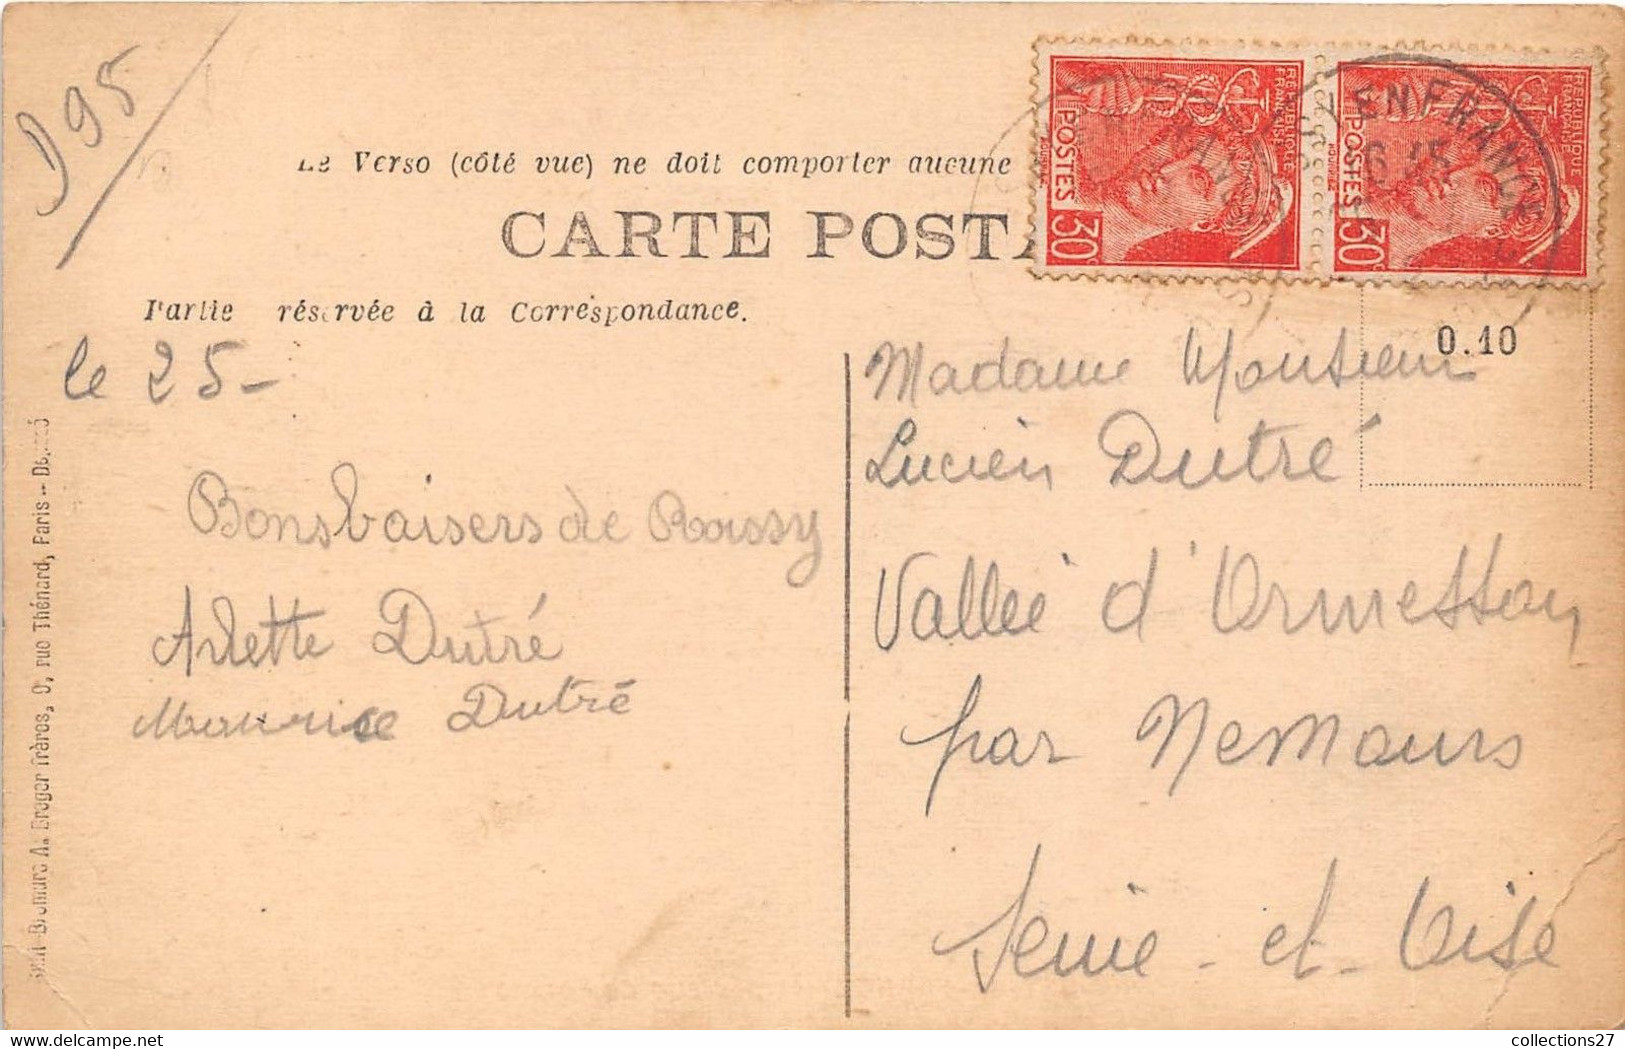 D95
Le Verso (côté vue) ne doit comporter aucune
CARTE POSTA
Partie réservée à la Correspondance.
REPUBLIQUE
FRANÇAISE
POSTES
30c
REPUBLIQUE
FRANÇAISE
POSTES
30c
EN FRANCE
0.10
le 25-
Bons baisers de Roissy
Arlette Dutré
Maurice Dutré
Madame Monsieur
Lucien Dutré
Vallée d'Ormesson
par Nemours
Seine-et-Oise
Bromure A. Breger frères, 9, rue Thénard, Paris -- Déposé
collections27